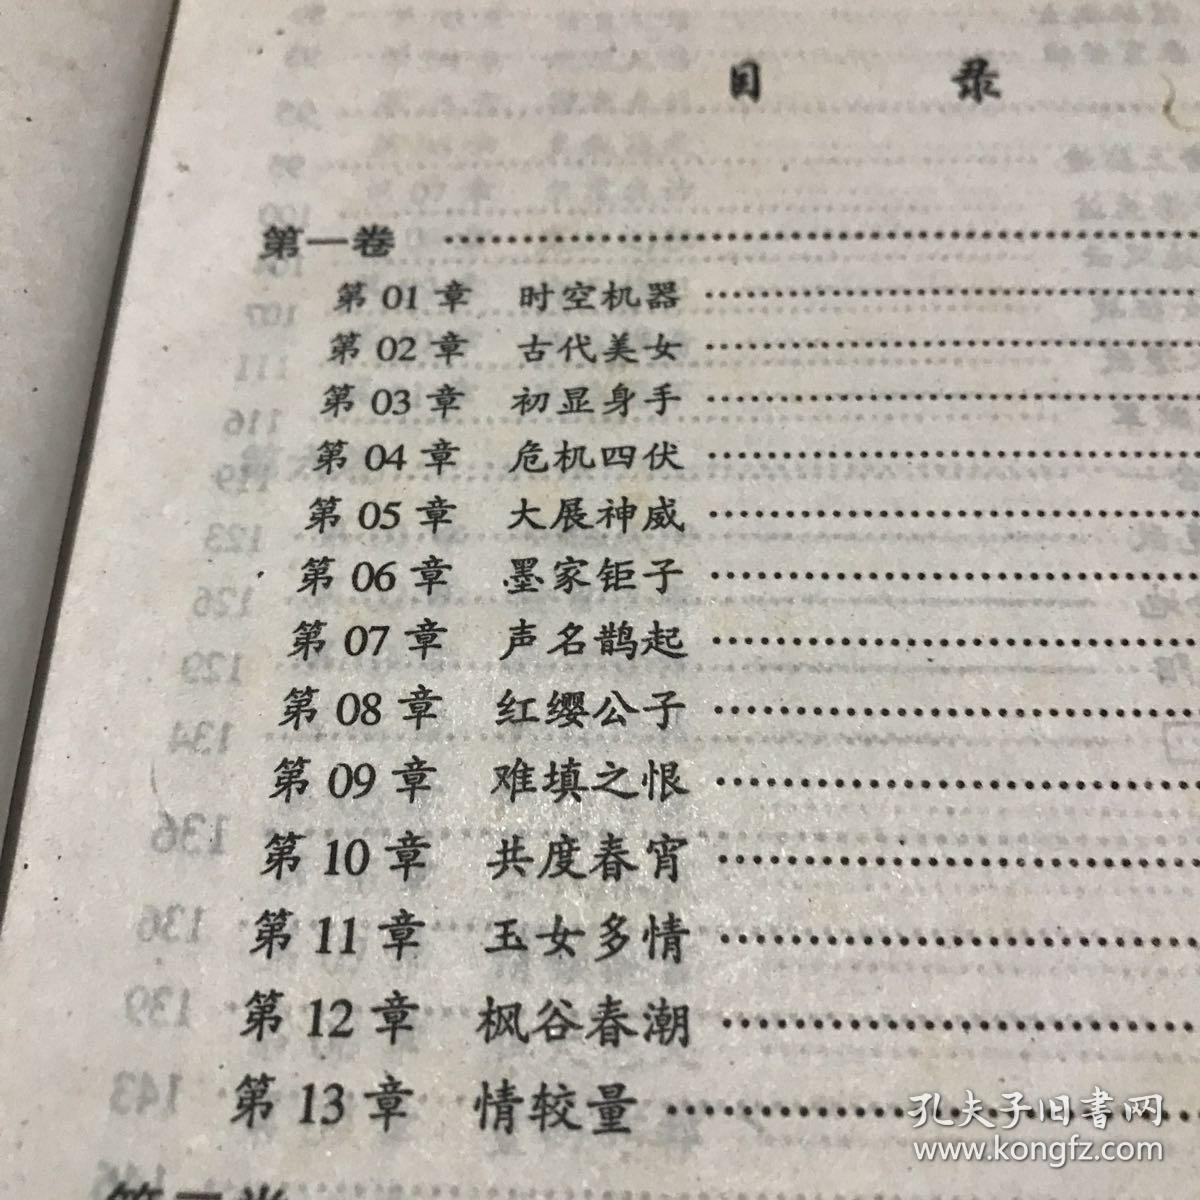 目 录
第一卷 ……………………
第 01 章 时空机器 ……………………
第 02 章 古代美女 ……………………
第 03 章 初显身手 ……………………
第 04 章 危机四伏 ……………………
第 05 章 大展神威 ……………………
第 06 章 墨家钜子 ……………………
第 07 章 声名鹊起 ……………………
第 08 章 红缨公子 ……………………
第 09 章 难填之恨 ……………………
第 10 章 共度春宵 ……………………
第 11 章 玉女多情 ……………………
第 12 章 枫谷春潮 ……………………
第 13 章 情较量 ……………………
孔夫子旧书网
www.kongfz.com